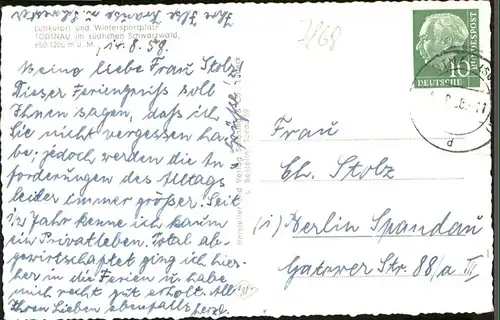 Luftkurort und Wintersportplatz
TODTNAU im südlichen Schwarzwald,
650-1200 m ü. M.
14. 8. 58.
Meine liebe Frau Stolz,
Dieser Feriengruß soll
Ihnen sagen, daß ich
Sie nicht vergessen ha-
be; jedoch werden die An-
forderungen des Alltags
leider immer größer. Seit
1/2 Jahr kenne ich kaum
ein Privatleben. Total ab-
gewirtschaftet ging ich hier-
her in die Ferien u. habe
mich recht gut erholt. All
Ihren Lieben ebenfalls herzl.
Grüße
Ihre Ilse u. Schwester
Hersteller und Verlag
Bestell-Nr.
DEUTSCHE
BUNDESPOST
10
Frau
Ch. Stolz
(1) Berlin Spandau
Gatower Str. 88/a III